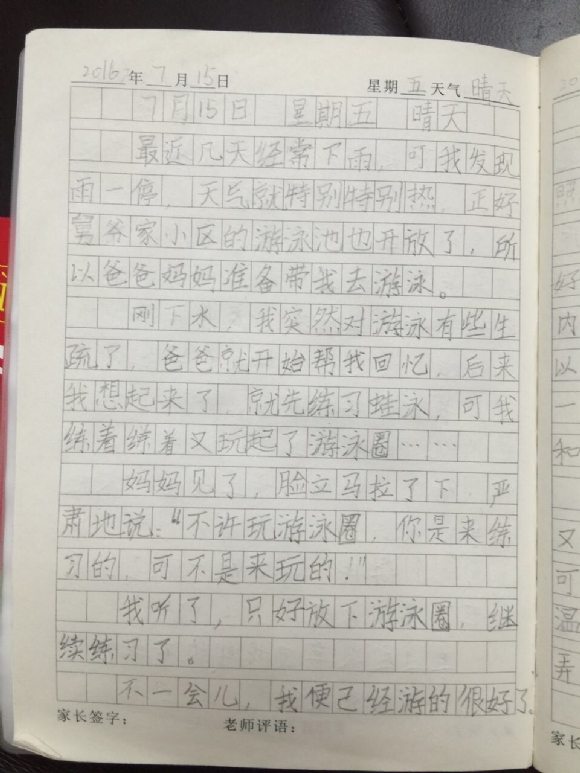 2016年7月15日 星期五天气晴天
7月15日 星期五 晴天
最近几天经常下雨，可我发现
雨一停，天气就特别特别热，正好
舅爷家小区的游泳池也开放了，所
以爸爸妈妈准备带我去游泳。
刚下水，我突然对游泳有些生
疏了，爸爸就开始帮我回忆，后来
我想起来了，就先练习蛙泳，可我
练着练着又玩起了游泳圈……
妈妈见了，脸立马拉了下，严
肃地说：“不许玩游泳圈，你是来练
习的，可不是来玩的！”
我听了，只好放下游泳圈，继
续练习了。
不一会儿，我便已经游的很好了。
家长签字： 老师评语：
好
内
以
一
和
又
可
温
弄
家长